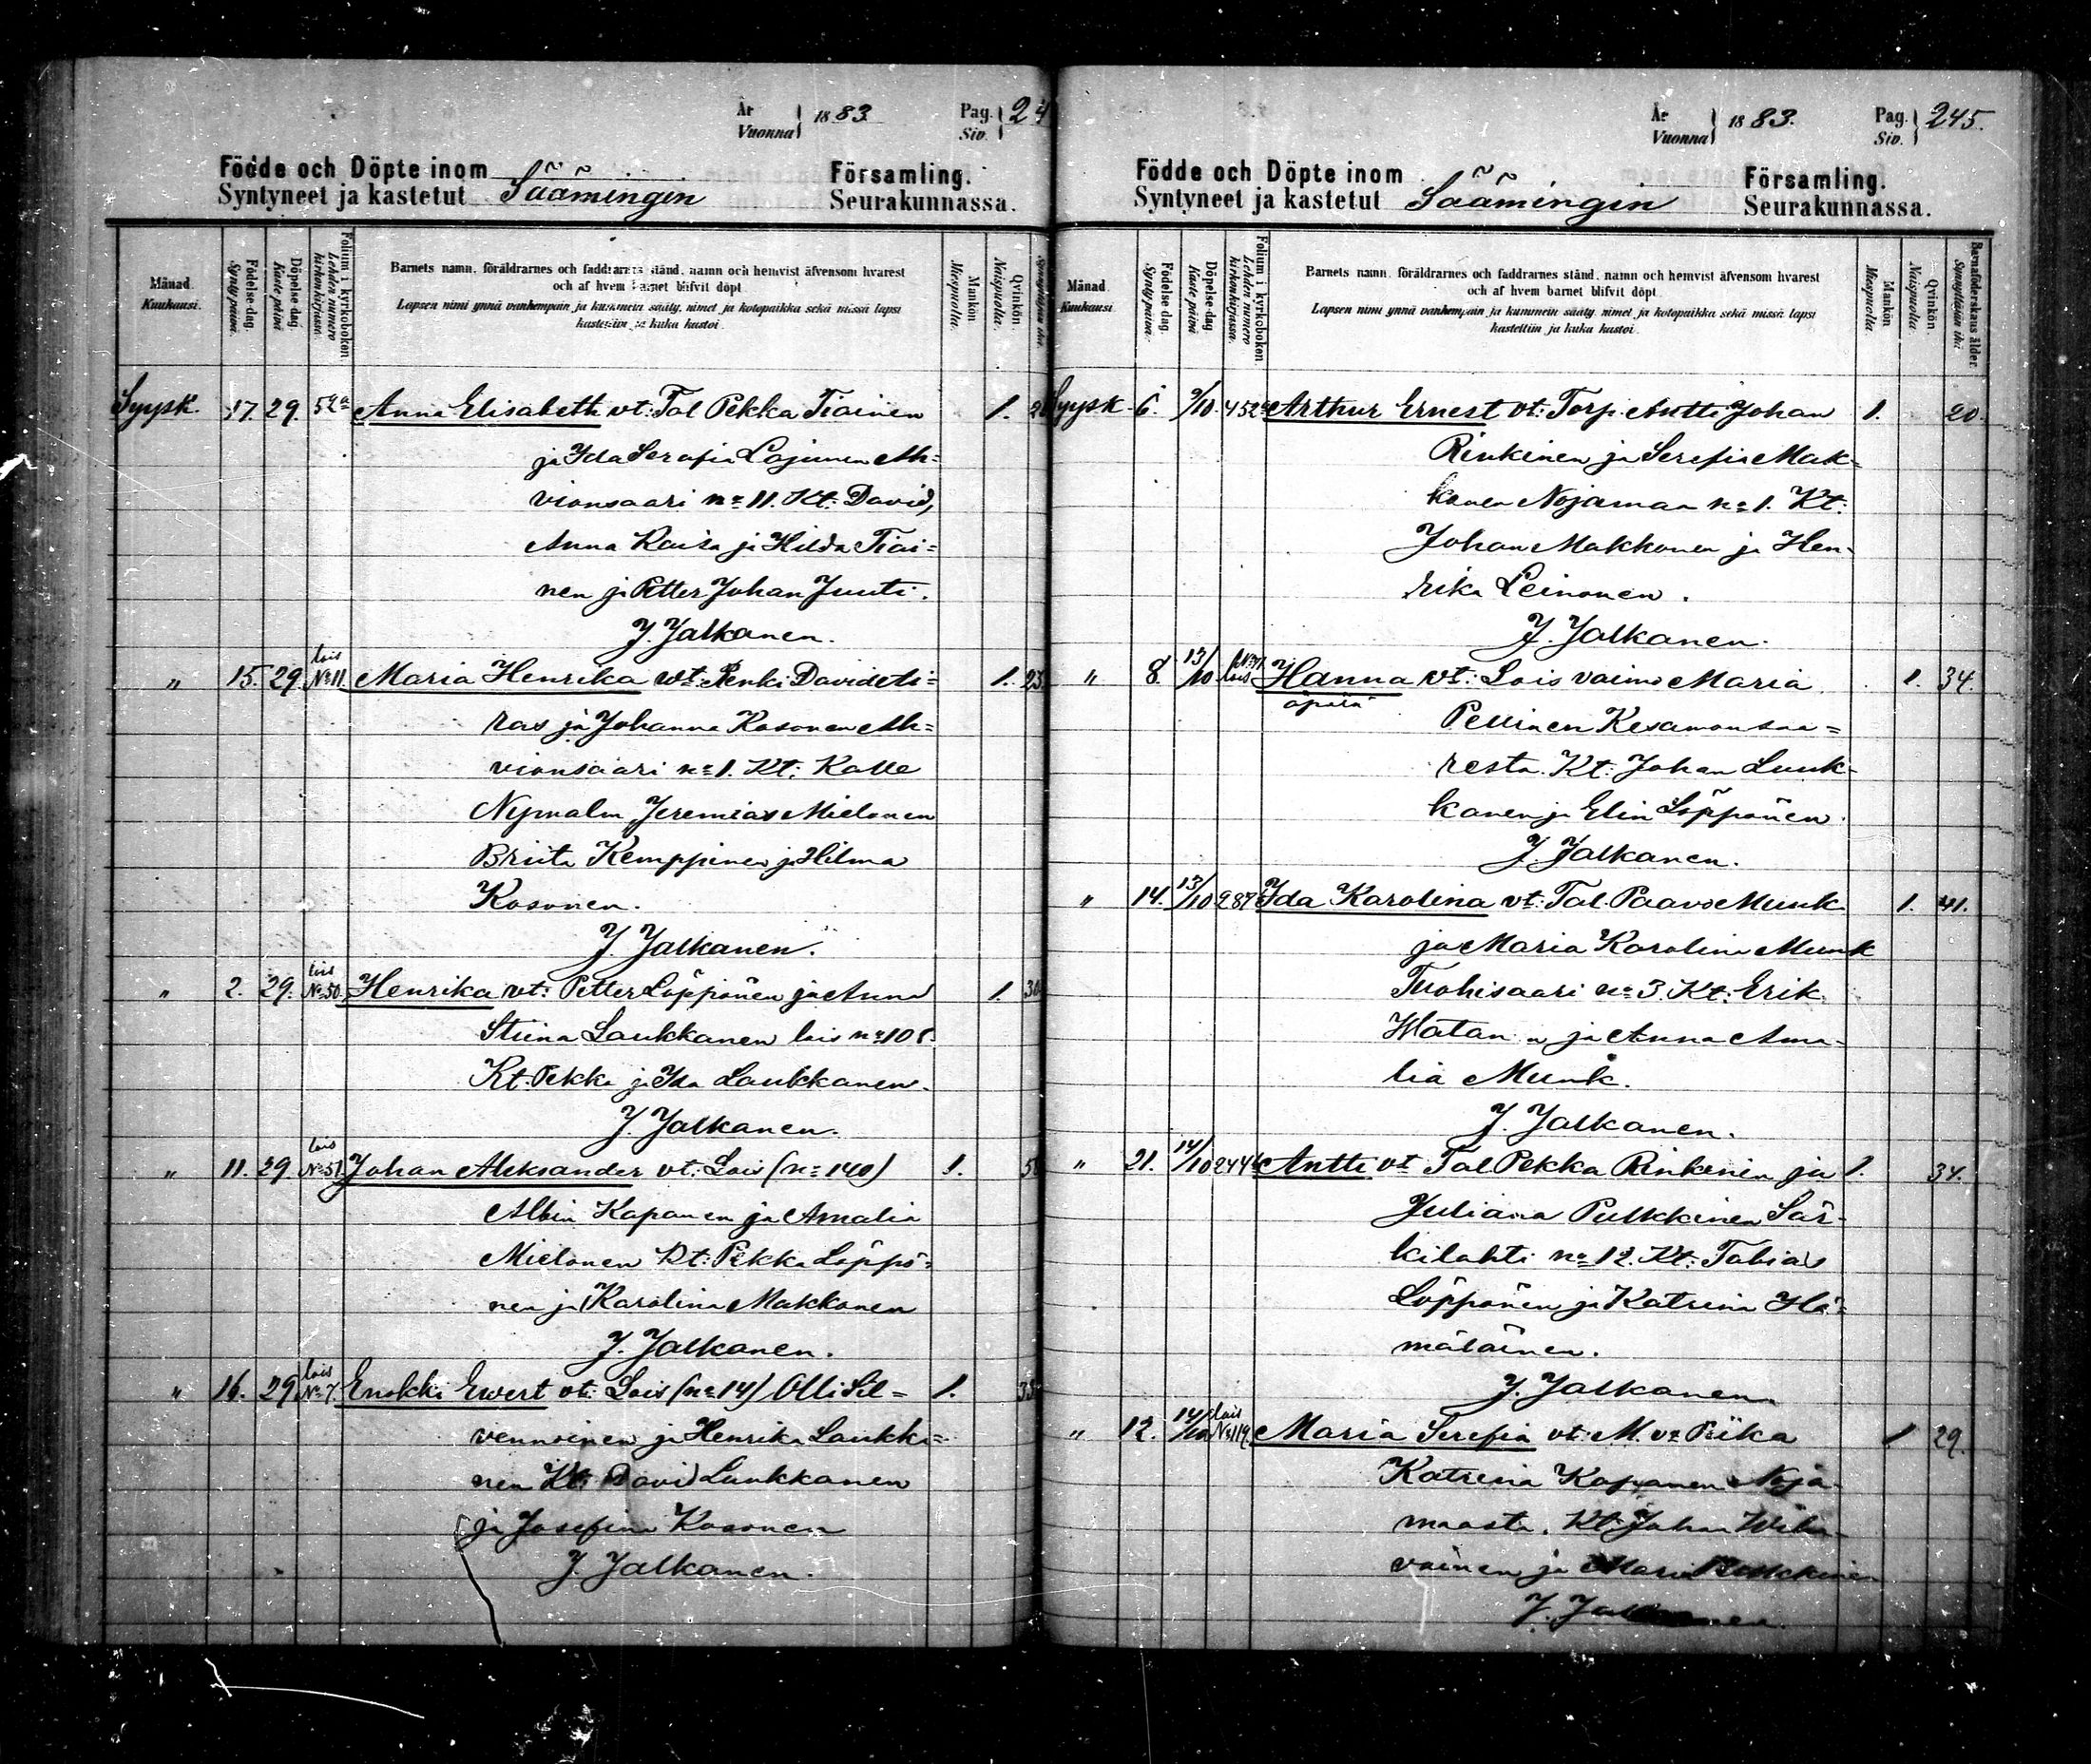 År
Vuonna } 1883. Pag.
Siv. } 24
Födde och Döpte inom
Syntyneet ja kastetut Säämingin Församling.
Seurakunnassa.
Månad.
Kuukausi.
Födelse-dag.
Synty päivä.
Döpelse-dag.
Kaste päivä.
Folium i kyrkoboken.
Lehden numero
kirkonkirjassa.
Barnets namn, föräldrarnes och faddrarnes stånd, namn och hemvist äfvensom hvarest
och af hvem barnet blifvit döpt.
Lapsen nimi ynnä vanhempain ja kummein sääty, nimet ja kotopaikka sekä missä lapsi
kastettiin ja kuka kastoi.
Mankön.
Miespuolta.
Qvinkön.
Naispuolta.
Syysk. 17. 29. 52a Anna Elisabeth vt: Tal Pekka Tiainen 1.
ja Ida Serafia Lajunen Ah=
vionsaari no 11. Kt: David,
Anna Kaisa ja Hilda Tiai=
nen ja Petter Johan Juuti.
J. Jalkanen.
" 15. 29. lois No 11. Maria Henrika vt: Renki David Ati= 1. 23
ras ja Johanna Kosonen Ah=
vionsaari no 1. Kt: Kalle
Nymalm, Jeremias Mielonen
Briita Kemppinen ja Hilma
Kosonen.
J. Jalkanen.
" 2. 29. lois No 50. Henrika vt: Petter Löppönen ja Anna 1. 30
Stiina Laukkanen lois no 108.
Kt. Pekka ja Ida Laukkanen.
J. Jalkanen.
" 11. 29. lois No 51. Johan Aleksander vt: Lois (no 140) 1.
Albin Kapanen ja Amalia
Mielonen Kt: Pekka Löppö=
nen ja Karolina Makkonen
J. Jalkanen.
" 16. 29 lois No 7. Enokki Ewert vt: Lois (no 14) Olli Sil= 1. 33
vennoinen ja Henrika Laukka=
nen Kt: David Luukkanen
ja Josefina Kosonen
J. Jalkanen.
År
Vuonna } 1883. Pag.
Siv. } 245.
Födde och Döpte inom
Syntyneet ja kastetut Säämingin Församling.
Seurakunnassa.
Månad.
Kuukausi.
Födelse-dag.
Synty päivä.
Döpelse-dag
Kaste päivä
Folium i kyrkoboken.
Lehden numero
kirkonkirjassa.
Barnets namn, föräldrarnes och faddrarnes stånd, namn och hemvist äfvensom hvarest
och af hvem barnet blifvit döpt.
Lapsen nimi ynnä vanhempain ja kummein sääty, nimet ja kotopaikka sekä missä lapsi
kastettiin ja kuka kastoi.
Mankön
Miespuolta
Qvinkön.
Naispuolta.
Barnaföderskans ålder.
Synnyttäjän ikä
Syysk. 6. 9/10. 452 Arthur Ernest vt: Torp. Antti Johan 1. 20.
Rinkinen ja Serefia Mak=
konen Nojamaa no 1. Kt:
Johan Makkonen ja Hen-
rika Leinonen.
J. Jalkanen.
" 8. 13/10 lois Hanna vt: Lois vaimo Maria 1. 34.
äpärä
Pellinen Kesamonsaa=
resta. Kt: Johan Luuk-
kanen ja Elin Löppönen.
J. Jalkanen.
" 14. 13/10 287 Ida Karolina vt: Tal. Paavo Munk 1. 41.
ja Maria Karolina Munk
Tuohisaari no 3. Kt: Erik
Watan n ja Anna Ama-
lia Munk.
J. Jalkanen.
" 21. 14/10 244 Antti vt Tal Pekka Rinkinen ja 1. 34.
Juliana Pulkkinen Sär-
kilahti no 12. Kt: Tobias
Löppönen ja Katrina Hä=
mäläinen.
J. Jalkanen
" 12. 14/10 lois No 119. Maria Serefia vt: M. va Riika 1 29.
Katrina Kapanen Noja-
maasta. Kt: Johan
vainen ja Maria
J. Jalkanen.